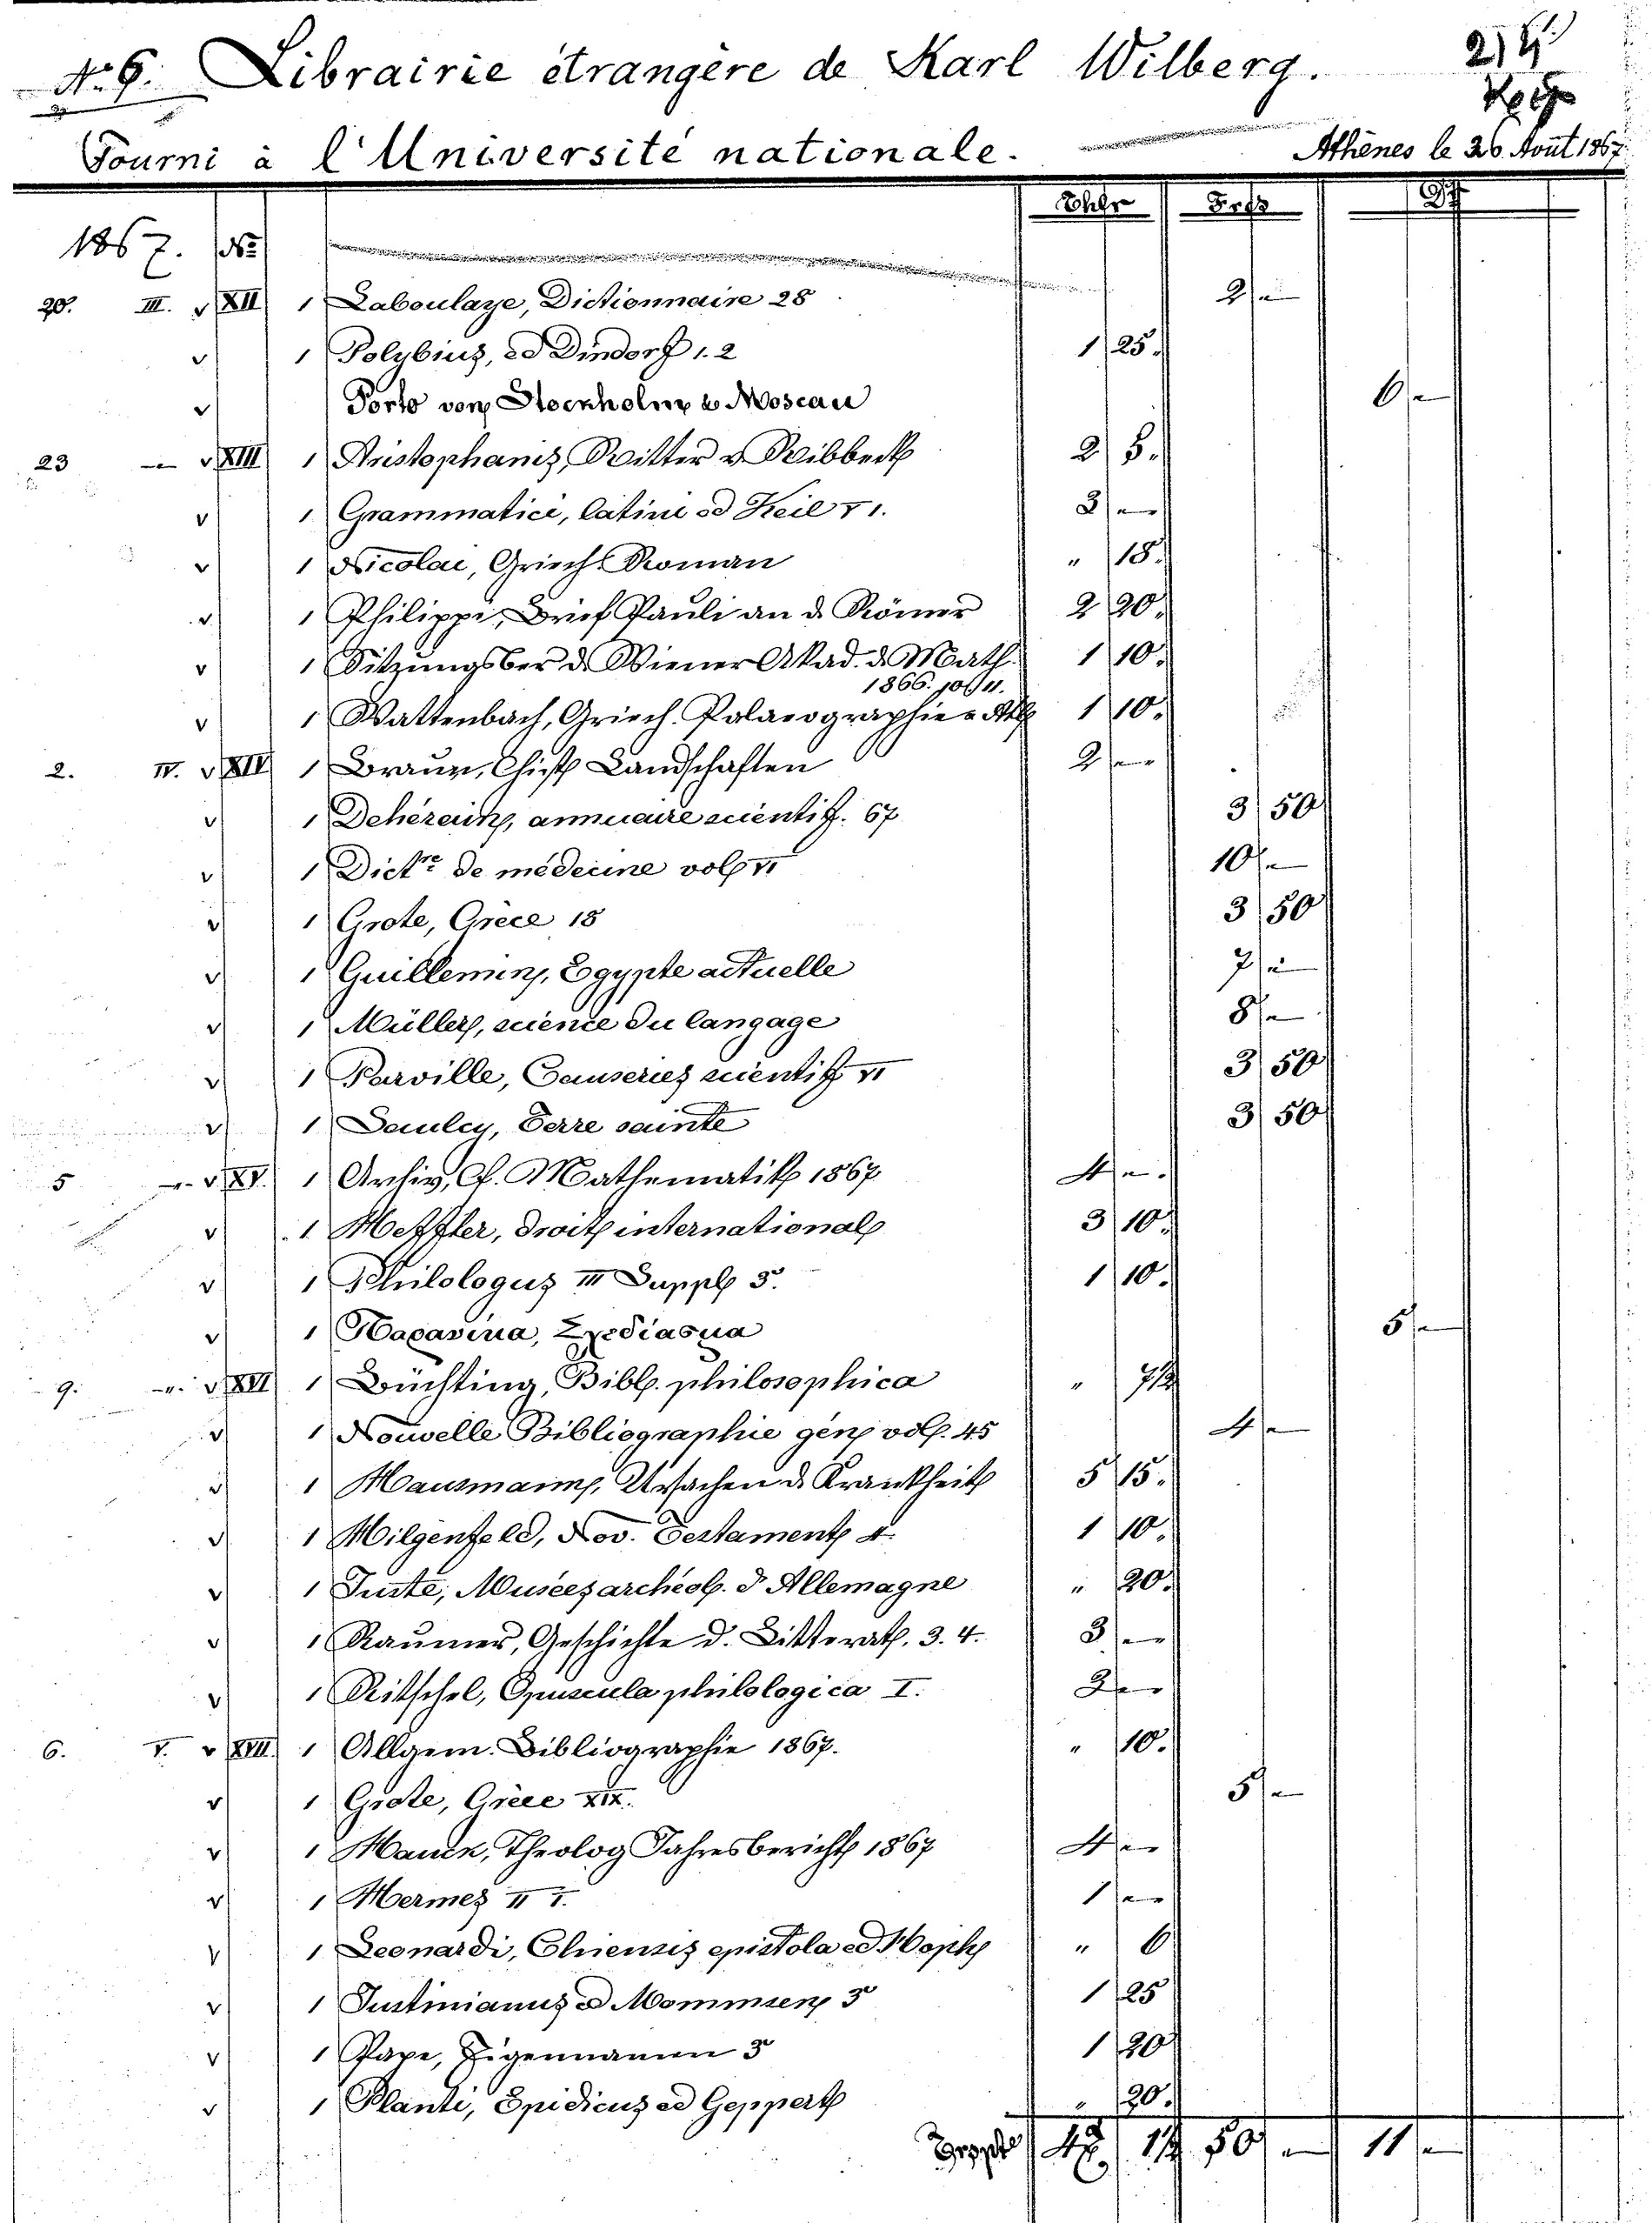 No 6. Librairie étrangère de Karl Wilberg.
214
Fourni à l'Université nationale. Athènes le 26 Août 1867.
Thlr Frcs
1867. No
20. III. v XII 1 Laboulaye, Dictionnaire 28 2 "
v 1 Polybius, ed Dindorf 1. 2 1 25.
v Porto von Stockholm & Moscau 6 "
23 " v XIII 1 Aristophanis, Ritter v. Ribbeck 2 5.
v 1 Grammatici, latini ed Keil V 1. 3 "
v 1 Nicolai, Griech. Roman " 18.
v 1 Philippi, Brief Pauli an d. Römer 2 20.
v 1 Sitzungsber d. Wiener Akad. d. Math. 1 10.
1866. 10 11.
v 1 Wattenbach, Griech. Palaeographie 1 10.
2. IV. v XIV 1 Braun, Landschaften 2 "
v 1 Deherain, annuaire scientif. 67 3 50
v 1 Dictre de médecine vol VI 10 "
v 1 Grote, Grèce 18 3 50
v 1 Guillemin, Egypte actuelle 7 "
v 1 Müller, science du langage 8 "
v 1 Parville, Causeries scientif VI 3 50
v 1 Saulcy, Terre sainte 3 50
5 " v XV. 1 Archiv, f. Mathematik 1867 4 "
v 1 Heffter, droit international 3 10.
v 1 Philologus III Suppl 5. 1 10.
v 1 5 "
9. " v XVI 1 Büchting, Bibl. philosophica " 7½
v 1 Nouvelle Bibliographie gén vol. 45 4 "
v 1 Hausmann, Ursachen d. Krankheit 5 15.
v 1 Hilgenfeld, Nov. Testament 4. 1 10.
v 1 Juste, Musées archéol. d'Allemagne " 20.
v 1 Raumer, Geschichte d. Litterat. 3. 4. 3 "
v 1 Ritschel, Opuscula philologica I. 2 "
6. V. v XVII 1 Allgem. Bibliographie 1867. " 10.
v 1 Grote, Grèce XIX. 5 "
v 1 Hauck, Theolog Jahresbericht 1867 4 "
v 1 Hermes II 1. 1 "
v 1 Leonardi, Chiensis epistola ed Hopf " 6
v 1 Justinianus ed Mommsen 5 1 25
v 1 Pape, Eigennamen 5 1 20
v 1 Plauti, Epidicus ed Geppert " 20.
50 " 11 "